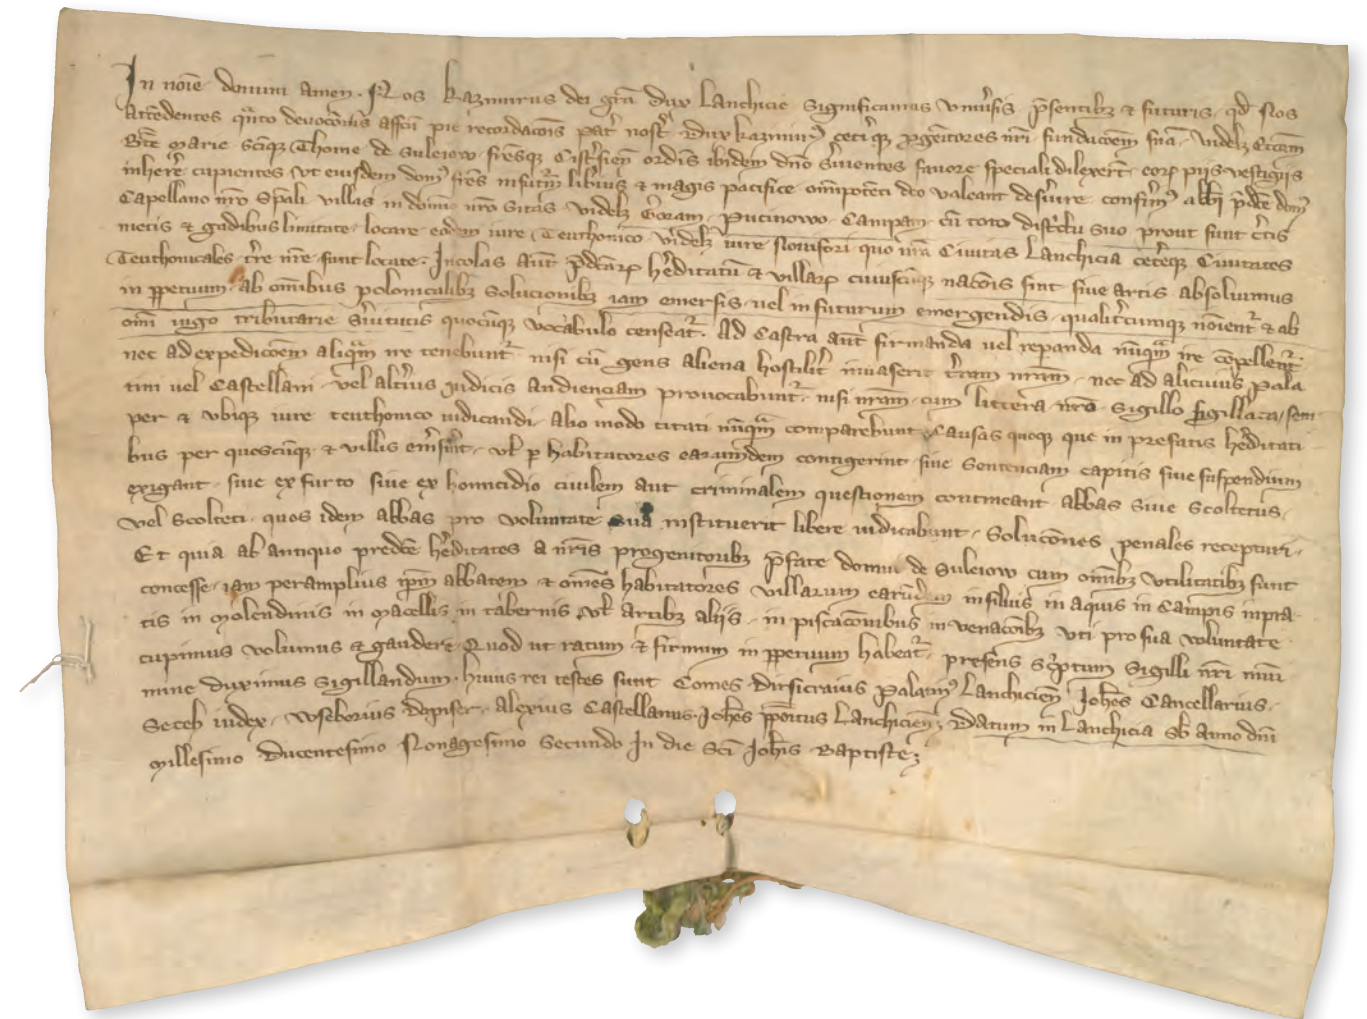 In noīe domini amen. Nos Kazimirus dei gr̄a Dux Lanchicie Significamus Vniūsis p̄sentibꝫ & futuris, qd̄ Nos
Attēdentes qͣnto deuoc̄onis affc̄u pie recordac̄ois pat̄s nost̄ Dux kazmirꝰ cetīqꝫ ꝓgēitores nr̄i fundac̄oem sūā, videlꝫ Ecc̄am
Bt̄e Marie sc̄iqꝫ Thome de Suleiow frēsqꝫ Cist̄sien̄ ordīs ibidem dn̄o s̄uientes fauore speciali dilexer̄t, eoꝝ piis vestigiis
inher̄e cupientes vt eiusdem domꝰ fr̄es insit̄m liƀius & magis pacifice om̄ipotēti deo valeant des̄uire. confīmꝰ abb̄i p̄dc̄e domꝰ
Capellano nr̄o Sp̄ali villas in domīo nr̄o sitas videlꝫ Goram, Pucinowo Campam cū toto dist̄ctu suo prout sunt c̄tis
metis & gͣdibus limitate, locare eodem iure Teuthonico videlꝫ iure Nouifori quo nr̄a Ciuitas Lanchicia cet̄eqꝫ Ciuitates
Teuthonicales t̄re nr̄e sunt locate. Incolas aūt p̄dc̄aꝝ h̄editatū & villaꝝ cuiuscūqꝫ nac̄ois sint siue artis absoluimus
in ꝑpetuum ab om̄ibus polonicalibꝫ Solucionibꝫ iam emersis vel in futurum emergendis, qualit̄cumqꝫ nōient̄ & ab
om̄i iugo tributarie s̄uitutis quocūqꝫ vocabulo censeat̄. Ad Castra aūt firmanda vel reꝑanda nūqͣm ire cōpellent̄
nec ad expedic̄oem aliqͣm ire tenebunt̄ nisi cū gens aliena hostilit̄ inuaserit t̄ram nr̄am, nec ad alicuius pala
tini vel Castellani vel alt̄ius iudicis audienciam prouocabunt̄, nisi nr̄am, cum littera nr̄o sigillo sigillata, sem
per & vbiqꝫ iure teuthonico iudicandi, alio modo citati nūqͣm comparebunt. Causas quoqꝫ que in prefatis h̄editati
bus per quoscūqꝫ & villis em̄s̄int, vl̄ ꝑ habitatores earumdem contigerint siue sentenciam capitis siue suspendium
exigant, siue ex furto siue ex homicidio ciuilem aut criminalem questionem contineant abbas siue Scoltetus,
vel scolteti, quos idem abbas pro voluntate sua instituerit libere iudicabunt, Soluc̄ones penales recepturi,
Et quia ab antiquo predc̄e h̄editates a nr̄is progenitoribꝫ p̄fate domui de Suleiow cum om̄ibꝫ vtilitatibꝫ sunt
concesse, iam peramplius ip̄m abbatem & om̄es habitatores villarum earūdem in siluis in aquis in Campis in pra
tis in Molendinis in Macellis in tabernis vl̄ artibꝫ aliis, in piscac̄onibus in venac̄oibꝫ vti pro sua voluntate
cupimus volumus & gaudere. Quod ut ratum & firmum in ꝑpetuum habeat̄, presens sc̄ptum Sigilli nr̄i mūi
mine duximus sigillandum. huius rei testes sunt Comes Dirsicraius palat̄inꝰ Lanchicien̄, Joh̄es Cancellarius,
Seceh iudex, Wseborius dapifer, Alexius Castellanus, Joh̄es p̄poitus Lanchicien̄. Datum in Lanchicia sƀ anno dn̄i
Millesimo Ducentesimo Nonagesimo Secundo In die Sc̄i Joh̄is Baptiste